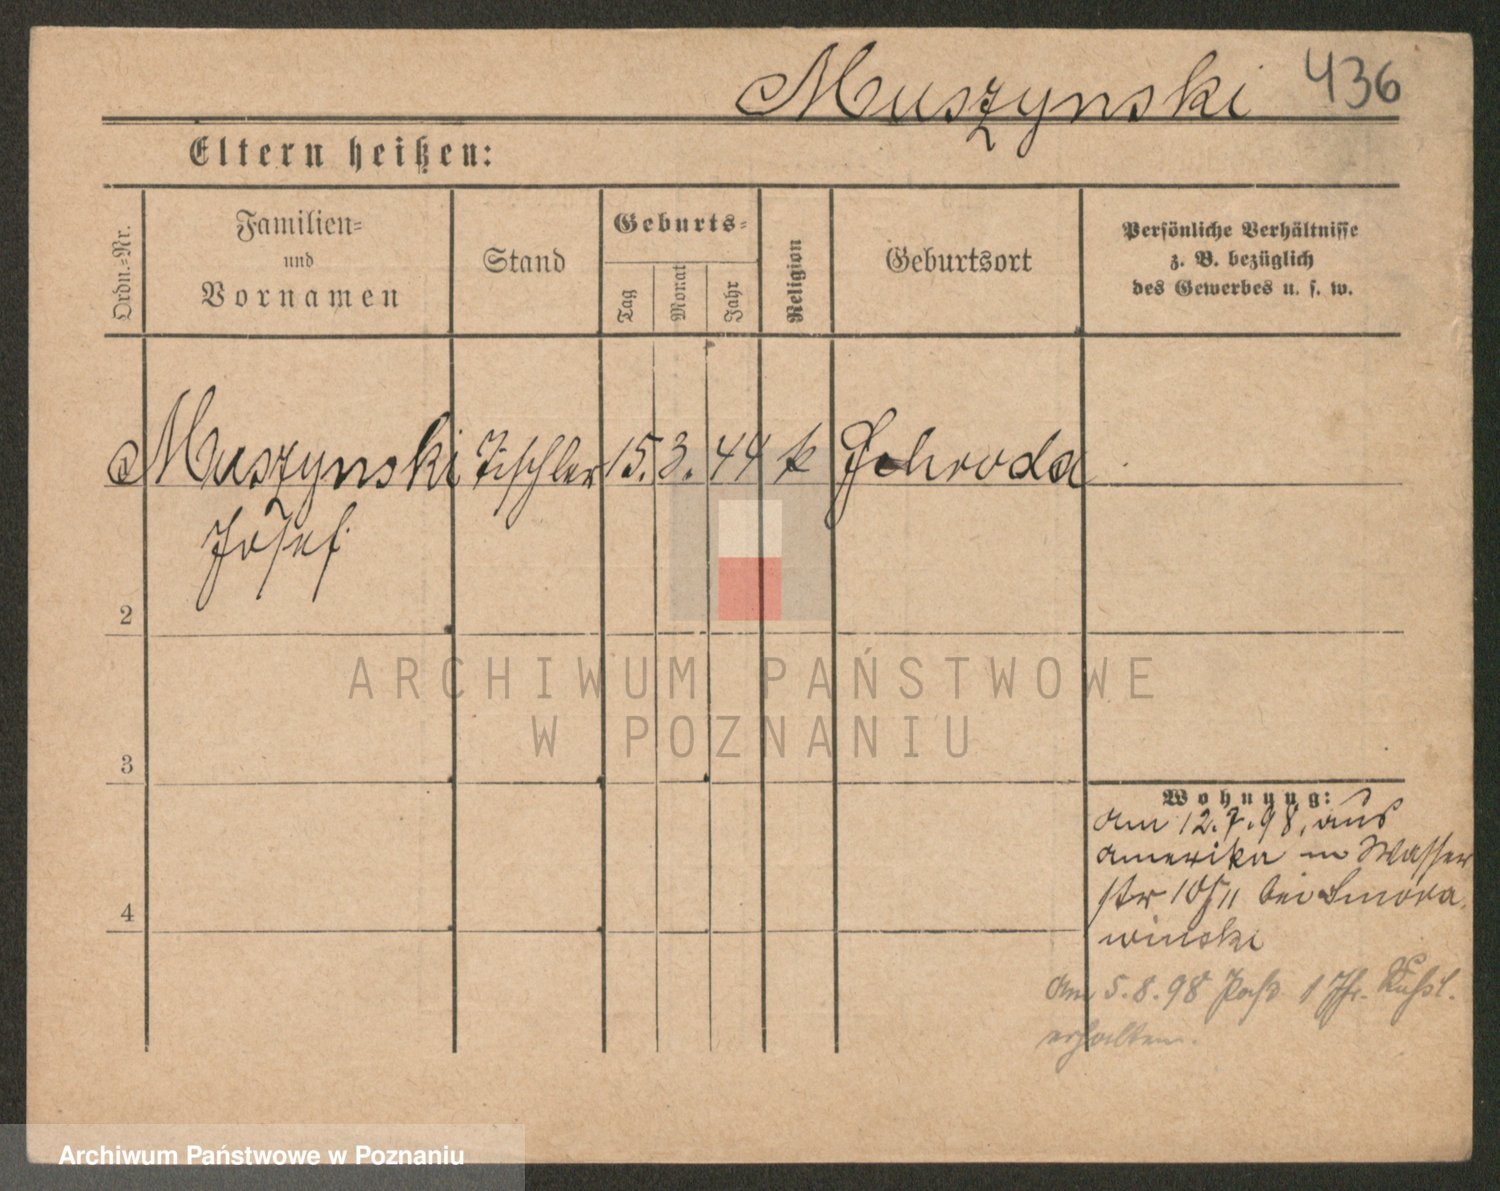 Muszynski 436
Eltern heißen:
Ordn.-Nr.
Familien-
und
Vornamen
Stand
Geburts-
Tag
Monat
Jahr
Religion
Geburtsort
Persönliche Verhältnisse
z. B. bezüglich
des Gewerbes u. s. w.
Muszynski Tischler 15. 3. 44 k Schroda
Josef
2
3
4
Wohnung:
am 12.7.98, aus
Amerika in Wasser
str 10/11 bei Smora
winski
Am 5.8.98 Paß 1 Jhr. Rußl.
erhalten.
ARCHIWUM PAŃSTWOWE
W POZNANIU
Archiwum Państwowe w Poznaniu